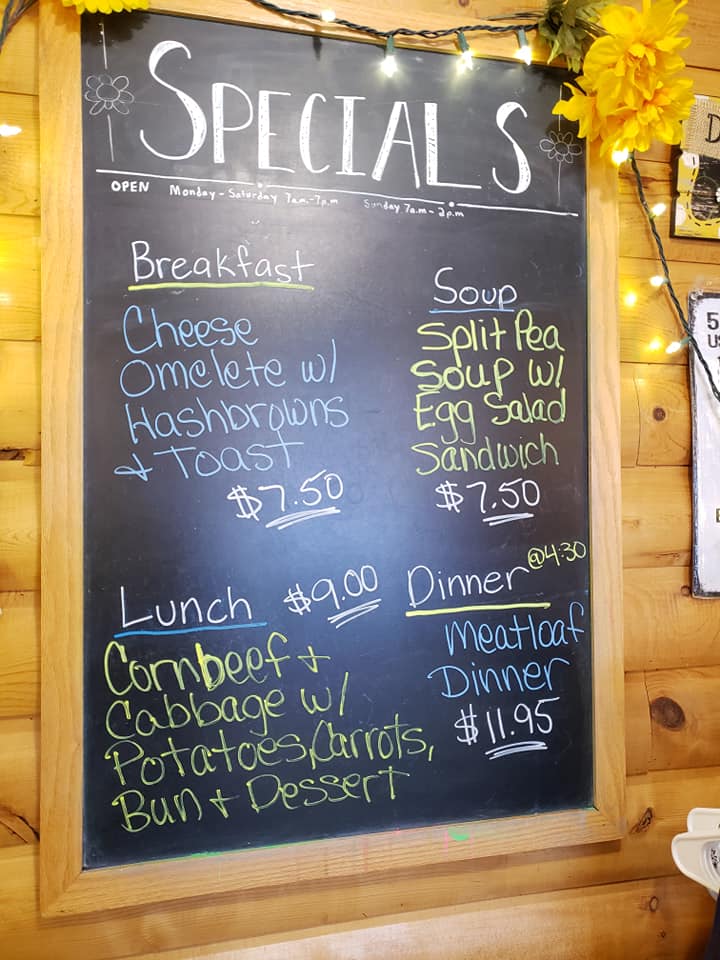 SPECIALS
OPEN Monday - Saturday 7a.m.-7p.m Sunday 7a.m - 2p.m
Breakfast
Cheese
Omelete w/
Hashbrowns
+ Toast
$7.50
Soup
Split Pea
Soup w/
Egg Salad
Sandwich
$7.50
Lunch $9.00
Cornbeef +
Cabbage w/
Potatoes, Carrots,
Bun + Dessert
Dinner @4:30
Meatloaf
Dinner
$11.95
D
5
US